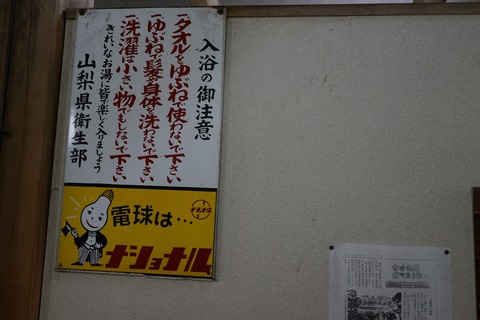 入浴の御注意
一、タオルをゆぶねで使わないで下さい
一、ゆぶねで髪や身体を洗わないで下さい
一、洗濯は小さい物でもしないで下さい
きれいなお湯に皆で楽しく入りましょう
山梨県衛生部
電球は…
ナショナル
ナショナル